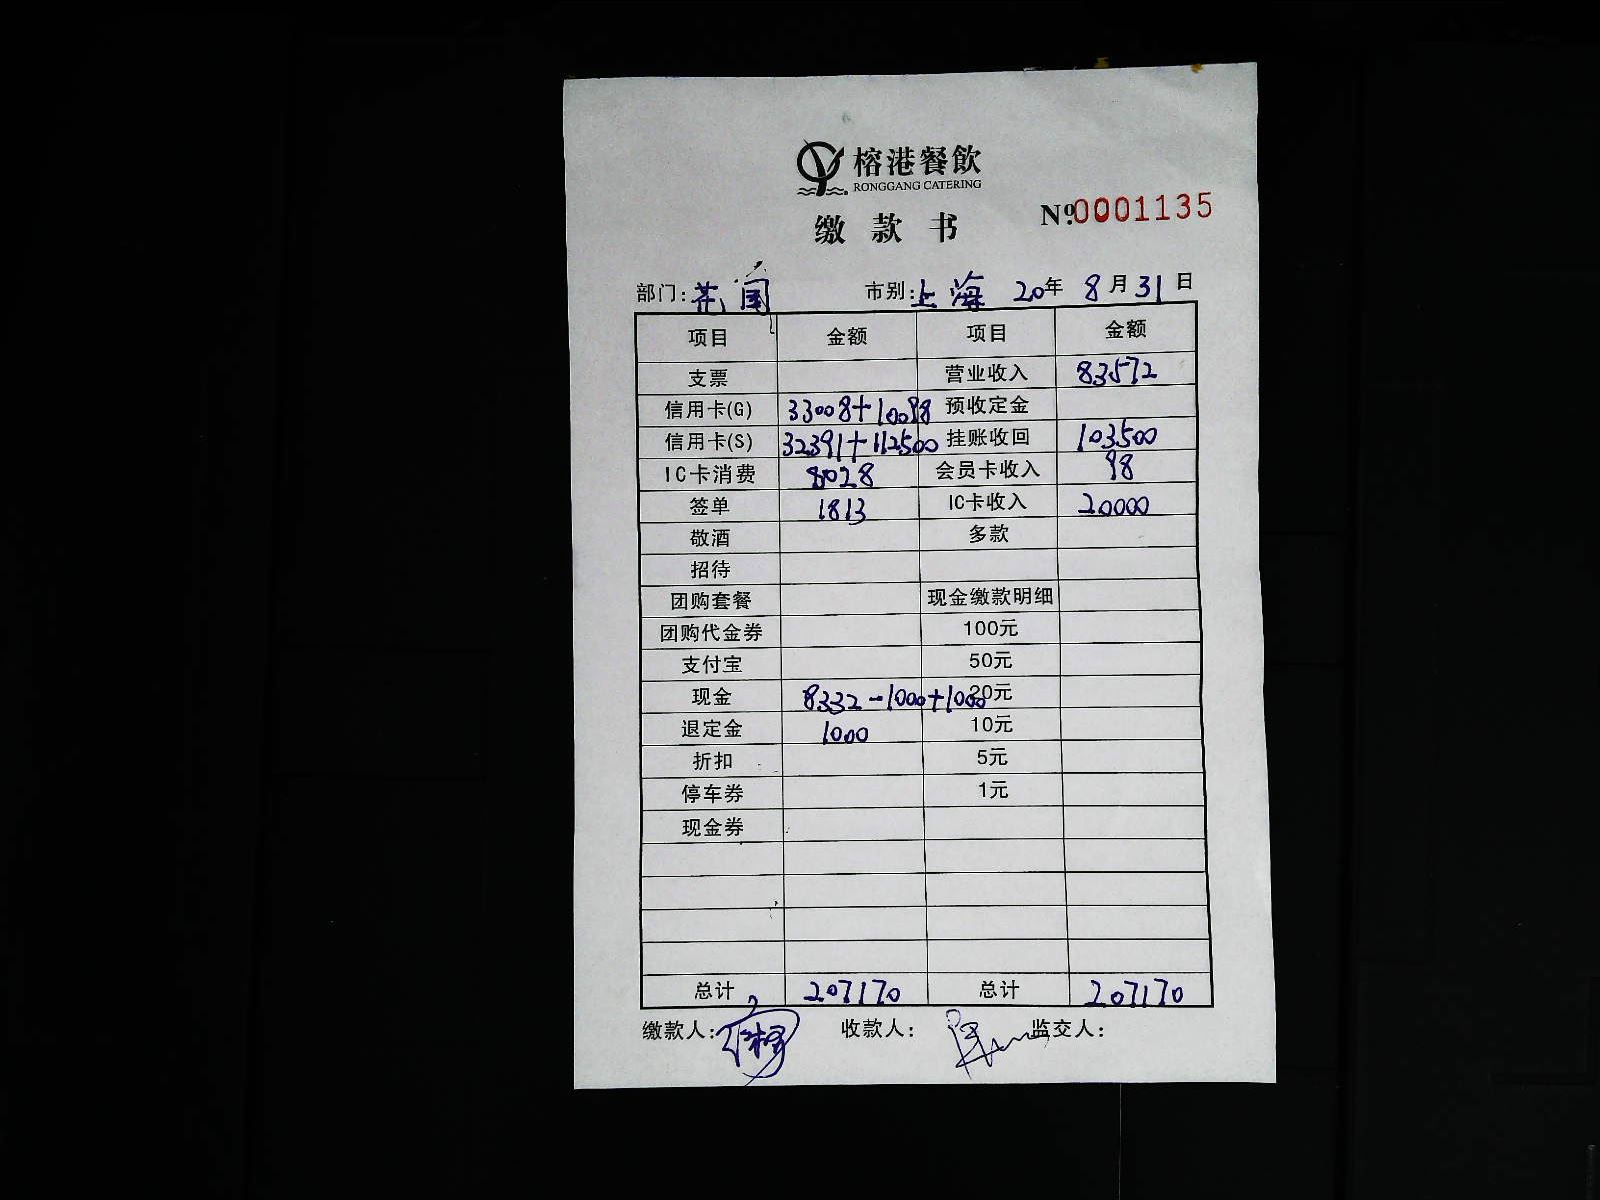 榕港餐飲
RONGGANG CATERING
缴款书
№0001135
部门: 市别:上海 20年 8月31日
项目 金额 项目 金额
支票 营业收入 83572
信用卡(G) 33008+10098 预收定金
信用卡(S) 32391+112500 挂账收回 103500
IC卡消费 8028 会员卡收入 98
签单 1813 IC卡收入 20000
敬酒 多款
招待
团购套餐 现金缴款明细
团购代金券 100元
支付宝 50元
现金 8332-1000+1000 20元
退定金 1000 10元
折扣 5元
停车券 1元
现金券
总计 207170 总计 207170
缴款人: 收款人: 监交人: